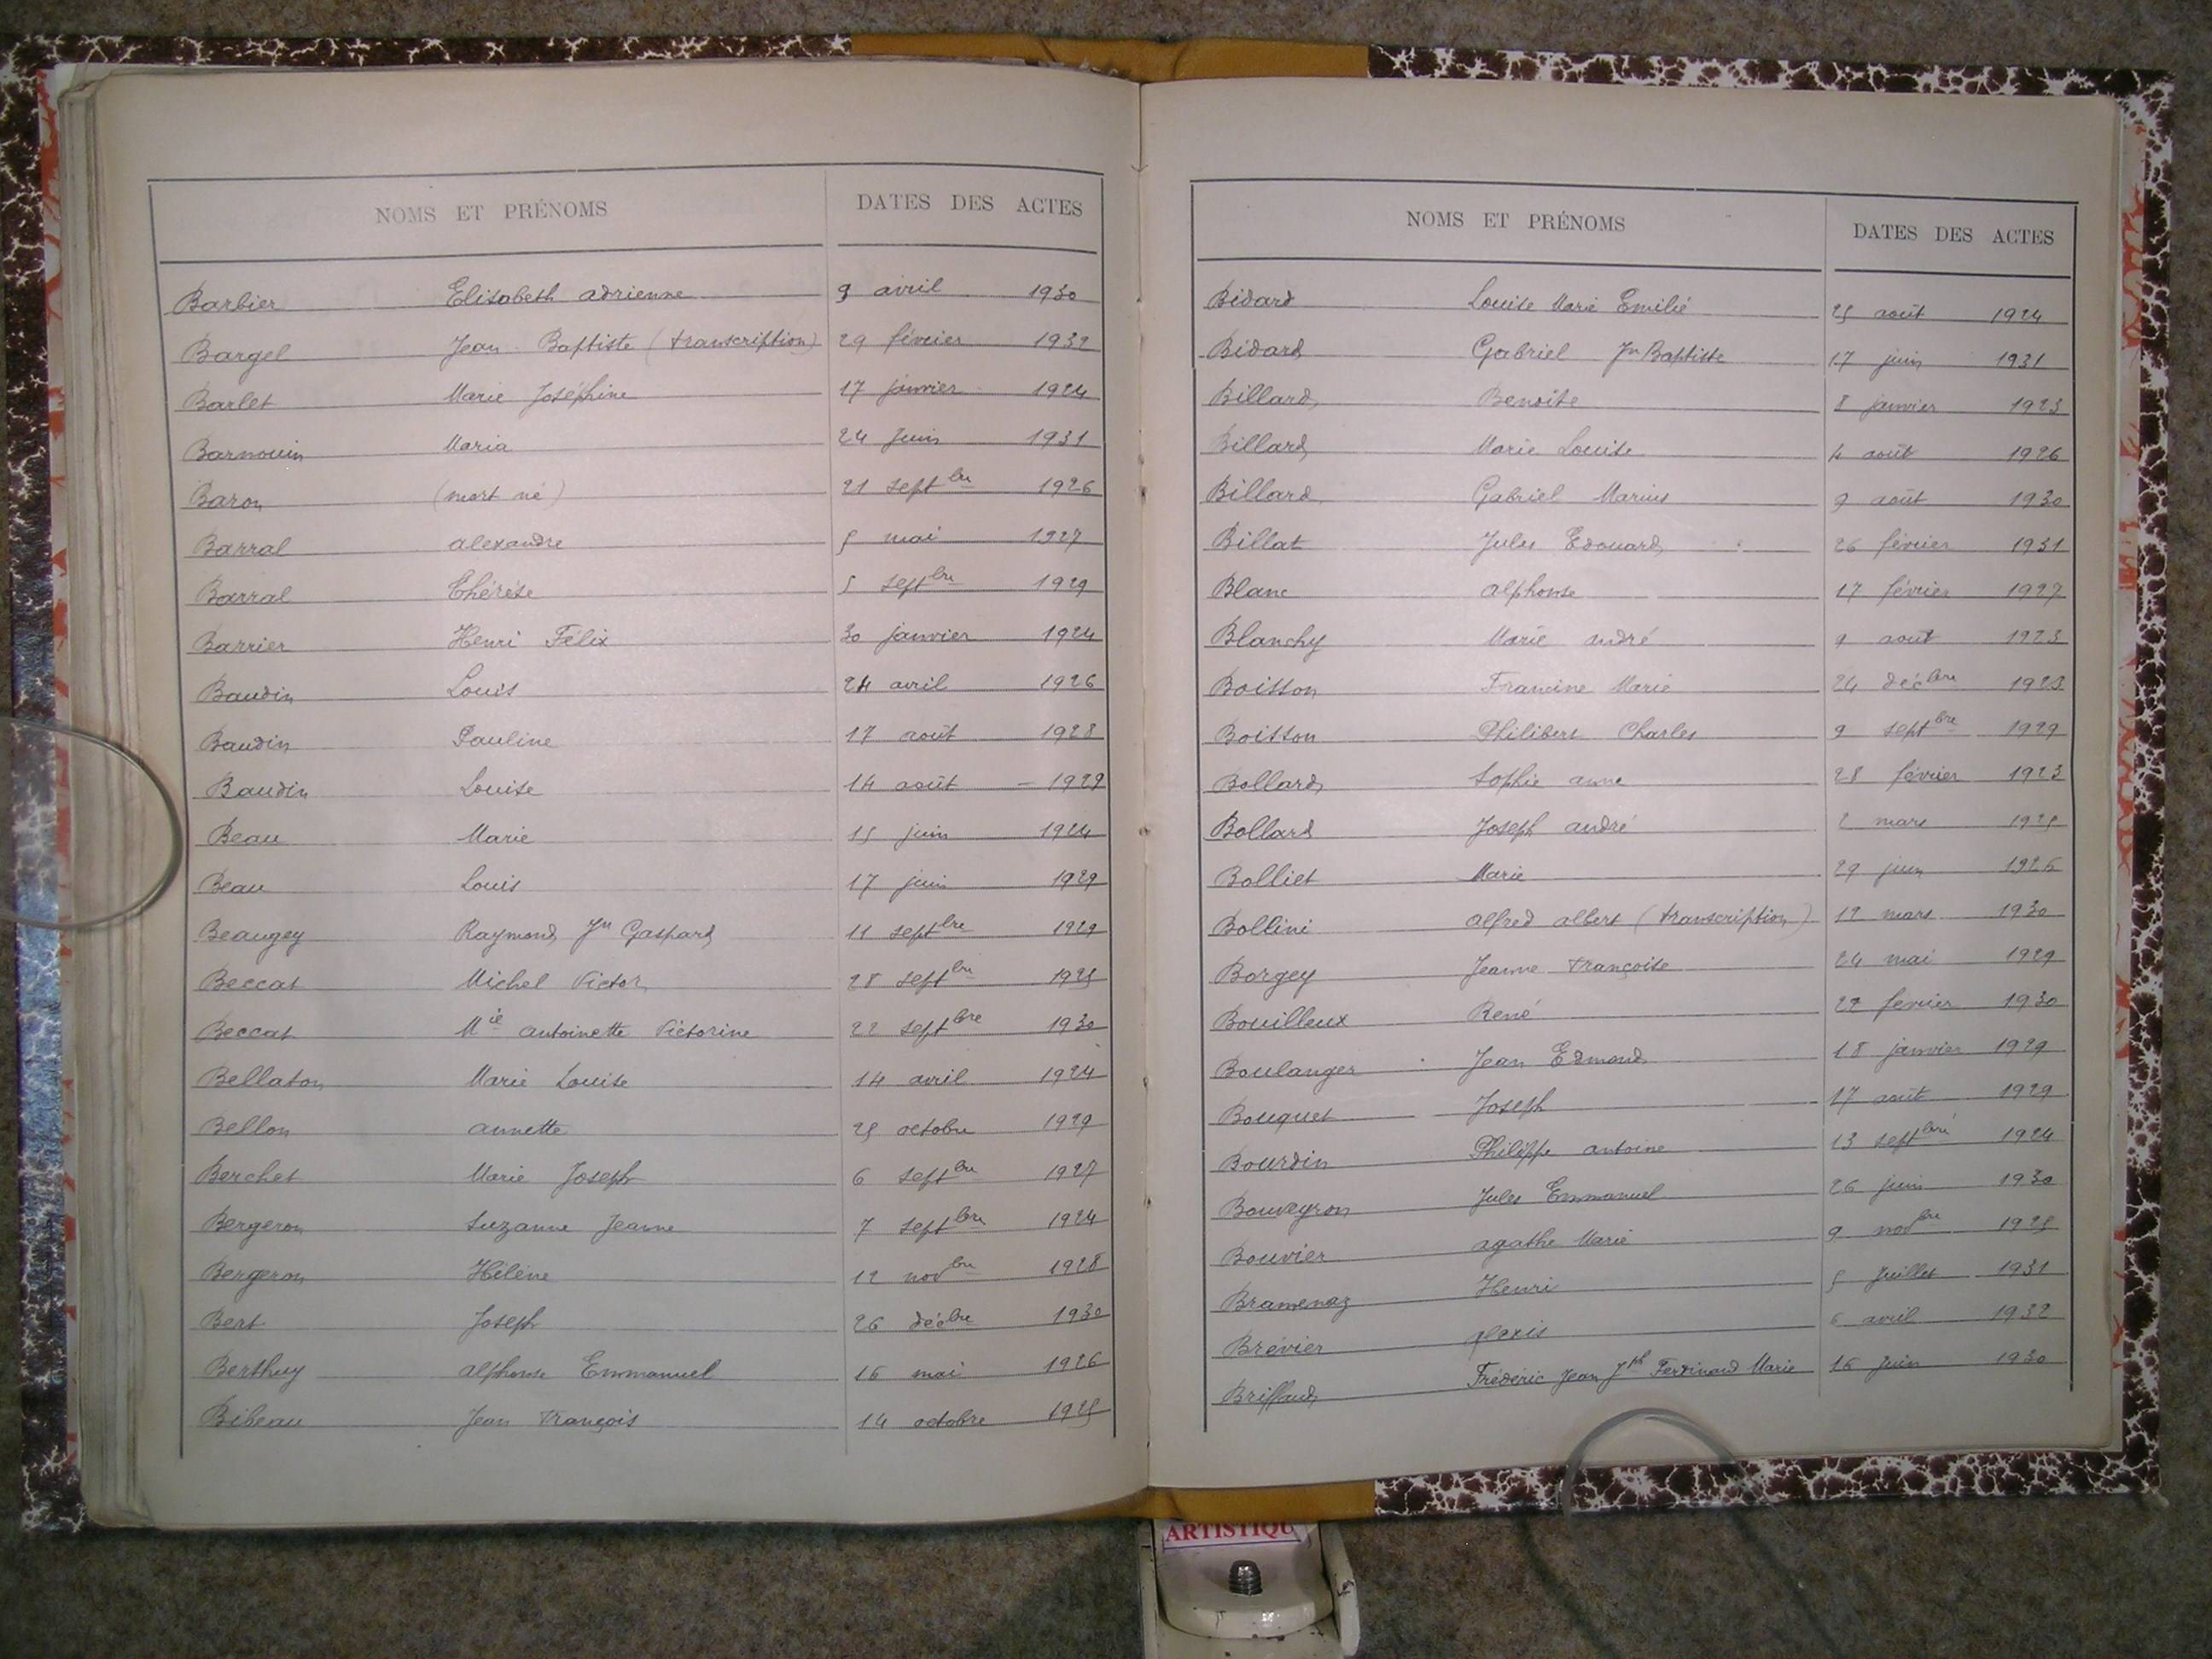 NOMS ET PRÉNOMS DATES DES ACTES
Barbier Elisabeth adrienne 9 avril 1930
Bargel Jean Baptiste (transcription) 29 février 1932
Barlet Marie Joséphine 17 janvier 1924
Barnouin Maria 24 juin 1931
Baron (mort né) 21 septbre 1926
Barral alexandre 5 mai 1927
Barral Thérèse 5 septbre 1929
Barrier Henri Félix 30 janvier 1924
Baudin Louis 24 avril 1926
Baudin Pauline 17 août 1928
Baudin Louise 14 août 1929
Beau Marie 15 juin 1924
Beau Louis 17 juin 1929
Beaugey Raymond Jn Gaspard 11 septbre 1929
Beccat Michel Victor 28 septbre 1925
Beccat Mie antoinette Victorine 22 septbre 1930
Bellaton Marie Louise 14 avril 1924
Bellon annette 25 octobre 1929
Berchet Marie Joseph 6 septbre 1927
Bergeron Suzanne Jeanne 7 septbre 1924
Bergeron Hélène 12 novbre 1928
Bert Joseph 26 décbre 1930
Berthuy alphonse Emmanuel 16 mai 1926
Bibeau Jean François 14 octobre 1925
NOMS ET PRÉNOMS DATES DES ACTES
Bidard Louise Marie Emilie 25 août 1924
Bidard Gabriel Jn Baptiste 17 juin 1931
Billard Benoite 8 janvier 1923
Billard Marie Louise 4 août 1926
Billard Gabriel Marius 9 août 1930
Billat Jules Edouard 26 février 1931
Blanc alphonse 17 février 1927
Blanchy Marie andré 9 août 1923
Boisson Francine Marie 24 décbre 1923
Boisson Philibert Charles 9 septbre 1929
Bollard Sophie anne 28 février 1923
Bollard Joseph andré 2 mars 1925
Bolliet Marie 29 juin 1926
Bollini alfred albert (transcription) 12 mars 1930
Borgey Jeanne Françoise 24 mai 1929
Bouilleux René 22 février 1930
Boulanger Jean Edmond 18 janvier 1929
Bouquet Joseph 17 août 1929
Bourdin Philippe antoine 13 septbre 1924
Bouveyron Jules Emmanuel 26 juin 1930
Bouvier agathe Marie 9 novbre 1925
Bramenaz Henri 5 juillet 1931
Brévier alexis 6 avril 1932
Briffaud Frédéric Jean Jph Ferdinand Marie 16 juin 1930
ARTISTIQU